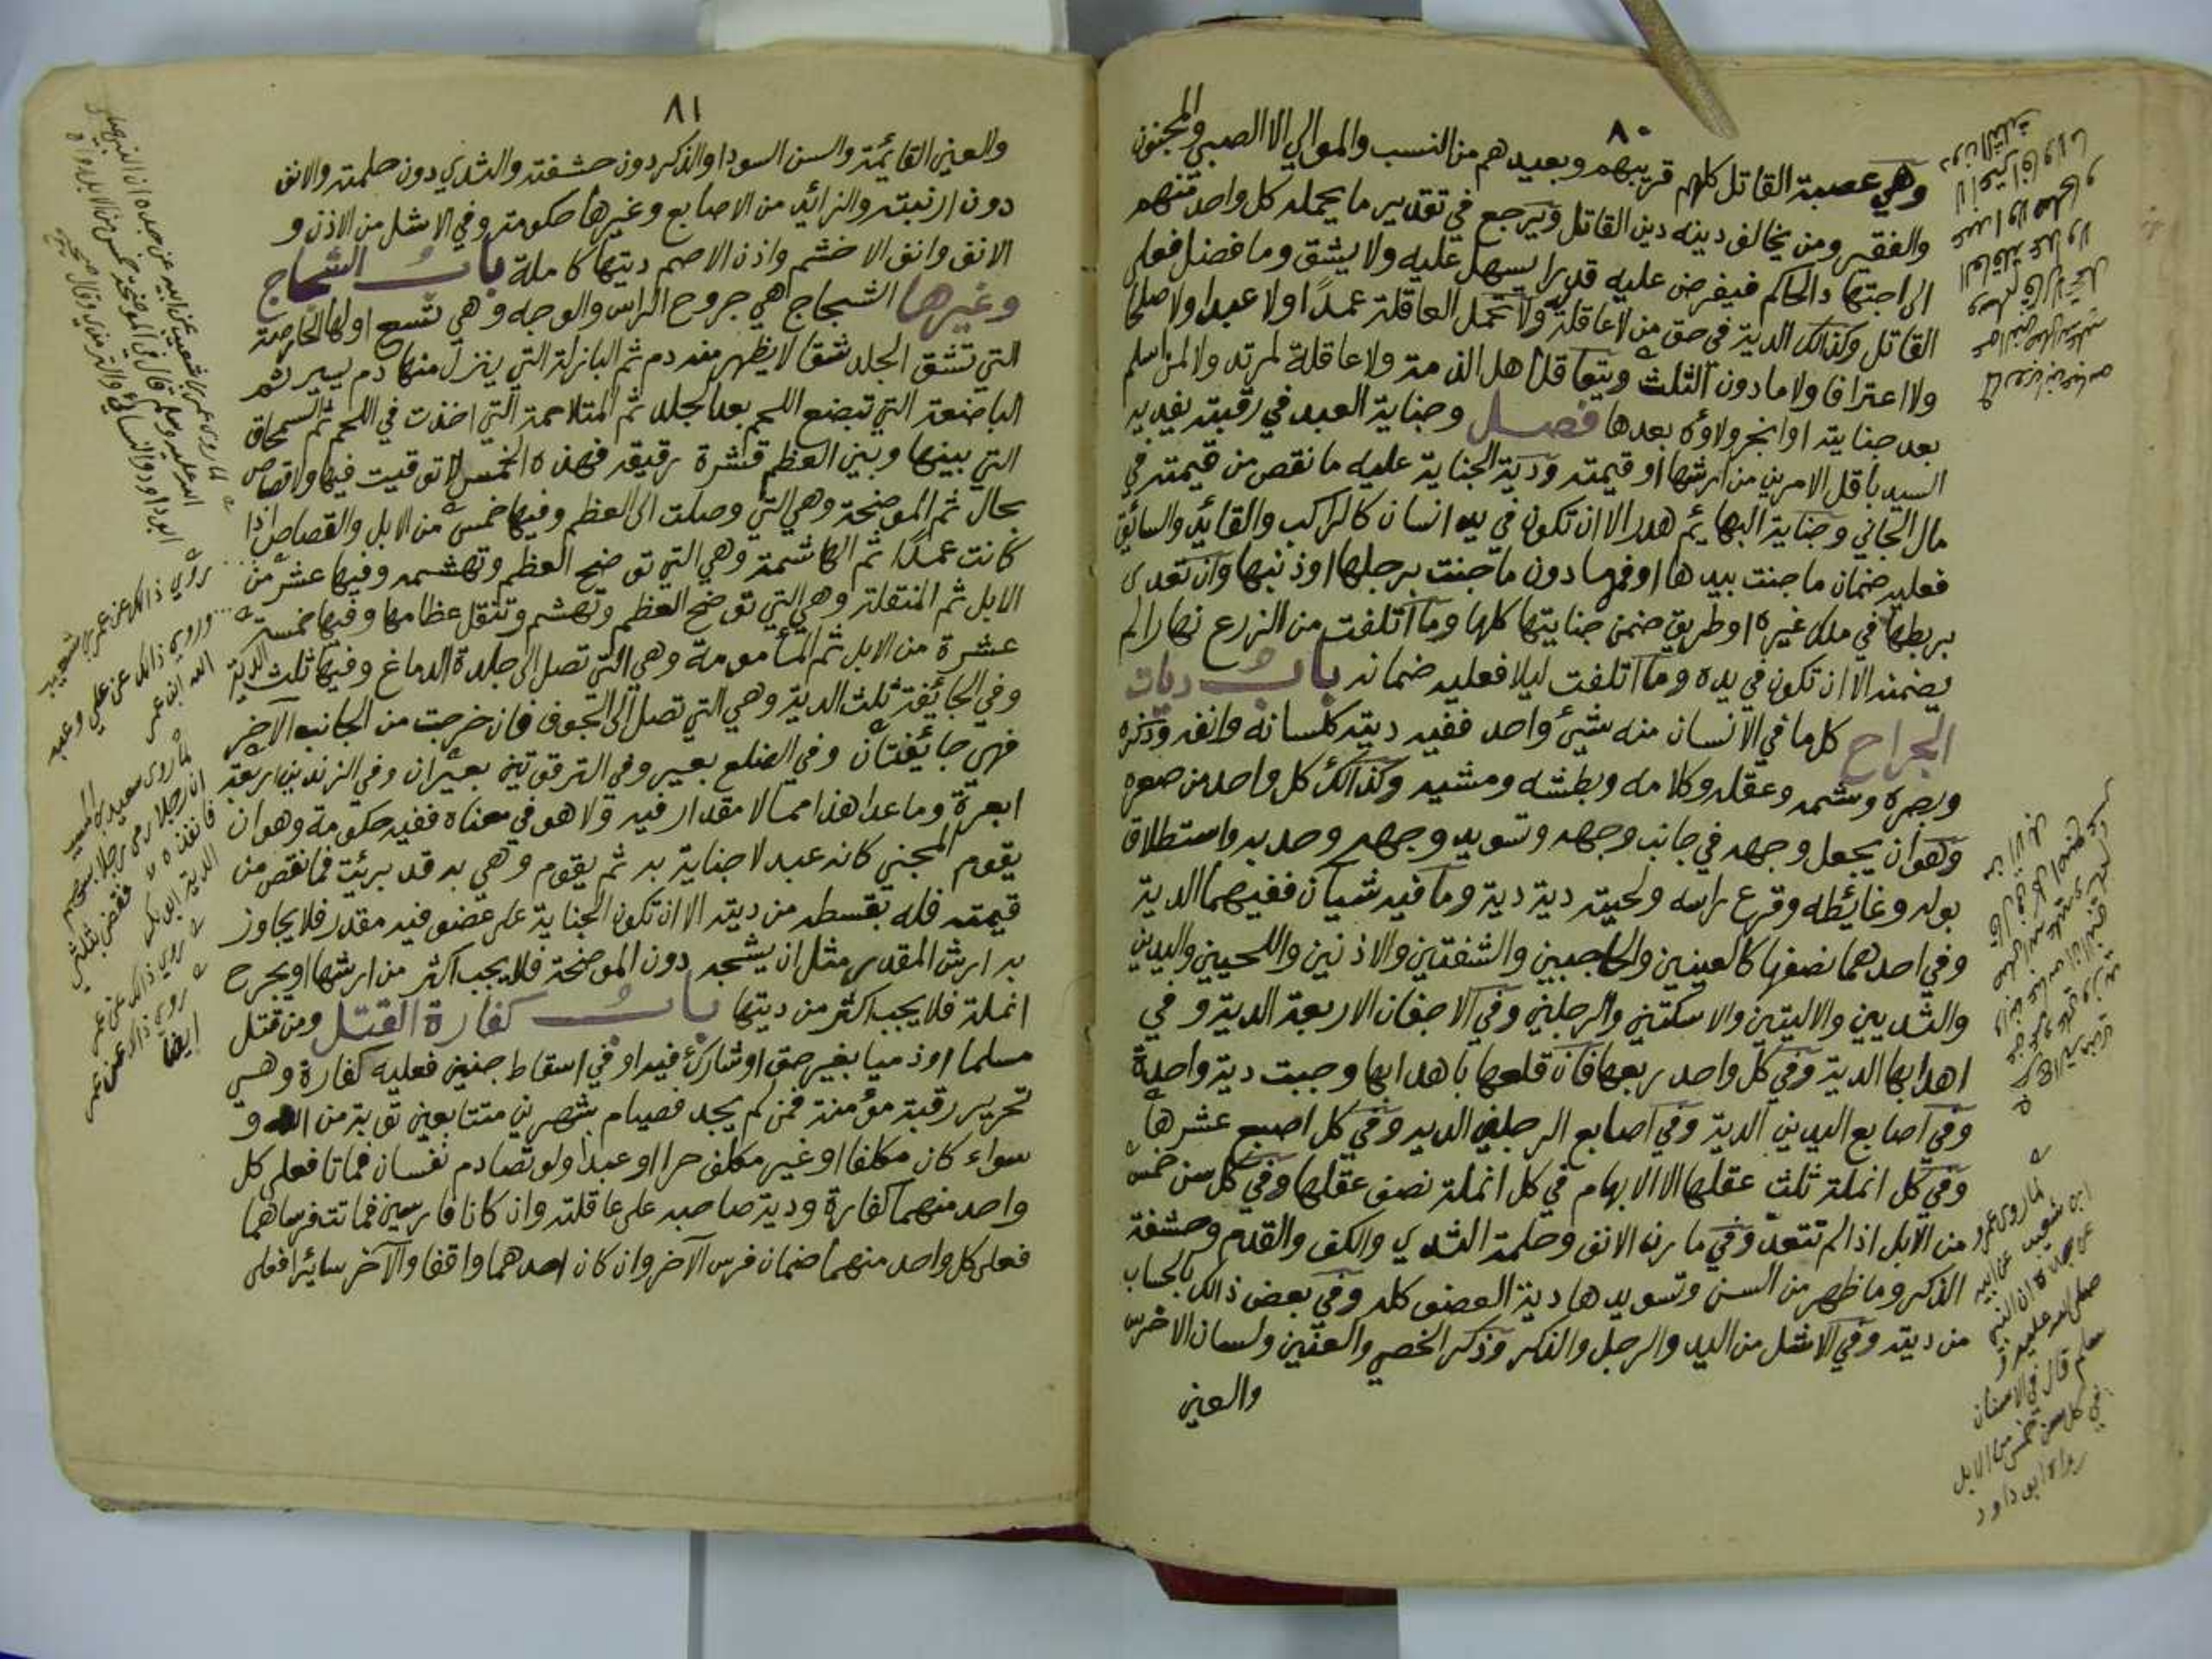 ٨٠
وهي عصبة القاتل كلهم قريبهم وبعيدهم من النسب والموالي الا الصبي والمجنون
والفقير ومن يخالف دينه دين القاتل ويرجع في تقدير ما يحمله كل واحد منهم
الى اجتهاد الحاكم فيفرض عليه قدرا يسهل عليه ولا يشق وما فضل فعلى
القاتل وكذالك الدية في حق من لا عاقلة له ولا تحمل العاقلة عمدًا ولا عبدا ولا صلحا
ولا اعترافا ولا ما دون الثلث ويتعاقل اهل الذمة ولا عاقلة لمرتد ولا لمن اسلم
بعد جنايته او انجر ولاؤه بعدها فصل وجناية العبد في رقبته يفديه
السيد باقل الامرين من ارشها او قيمته ودية الجناية عليه ما نقص من قيمته في
مال الجاني وجناية البهائم هدر الا ان تكون في يد انسان كالراكب والقائد والسائق
فعليه ضمان ما جنت بيدها او فمها دون ما جنت برجلها او ذنبها وان تعدى
بربطها في ملك غيره او طريق ضمن جنايتها كلها وما اتلفت من الزرع نهارا لم
يضمنه الا ان تكون في يده وما اتلفت ليلا فعليه ضمانه باب ديات
الجراح كل ما في الانسان منه شيئ واحد ففيه ديته كلسانه وانفه وذكره
وبصره وشمه وعقله وكلامه وبطشه ومشيه وكذالك كل واحد من صعره
وهو ان يجعل وجهه في جانب وجهه وتسويد وجهه وحدبه واستطلاق
بوله وغائطه وقرع راسه ولحيته دية دية وما فيه شيآن ففيهما الدية
وفي احدهما نصفها كالعينين والحاجبين والشفتين والاذنين واللحيين واليدين
والثديين والاليتين والاسكتين والرجلين وفي الاجفان الاربعة الدية وفي
اهدابها الدية وفي كل واحد ربعها فان قلعها باهدابها وجبت دية واحدة
وفي اصابع اليدين الدية وفي اصابع الرجلين الديه وفي كل اصبع عشرها
وفي كل انملة ثلث عقلها الا الابهام في كل انملة نصف عقلها وفي كل سن خمس
من الابل اذا لم تتعد وفي مارن الانف وحلمة الثدي والكف والقدم وحشفة
الذكر وما ظهر من السن وتسويدها دية العضو كله وفي بعض ذالك بالحساب
من ديته وفي الاشل من اليد والرجل والذكر وذكر الخصي والعنين ولسان الاخرس
والعين
لما روى عمرو
ابن شعيب عن ابيه
عن جده ان النبي
صلى الله عليه و
سلم قال في الاسنان
في كل سن خمس من الابل
رواه ابو داود
٨١
والعين القائمة والسن السودا والذكر دون حشفته والثدي دون حلمته والانف
دون ارنبته والزائد من الاصابع وغيرها حكومة وفي الاشل من الاذن و
الانف وانف الاخشم واذن الاصم ديتها كاملة باب الشجاج
وغيرها الشجاج هي جروح الراس والوجه وهي تسع اولها الحارصة
التي تشق الجلد شقا لا يظهر منه دم ثم البازلة التي ينزل منها دم يسير ثم
الباضعة التي تبضع اللحم بعد الجلد ثم المتلاحمة التي اخذت في اللحم ثم السمحاق
التي بينها وبين العظم قشرة رقيقه فهذه الخمس لا توقيت فيها ولا قصاص
بحال ثم الموضحة وهي التي وصلت الى العظم وفيها خمس من الابل والقصاص اذا
كانت عمدًا ثم الهاشمة وهي التي توضح العظم وتهشمه وفيها عشر من
الابل ثم المنقلة وهي التي توضح العظم وتهشم وتنقل عظامها وفيها خمسة
عشرة من الابل ثم المأمومة وهي التي تصل الى جلدة الدماغ وفيها ثلث الدية
وفي الجائفة ثلث الدية وهي التي تصل الى الجوف فان خرجت من الجانب الآخر
فهي جائفتان وفي الضلع بعير وفي الترقوتين بعيران وفي الزندين اربعة
ابعرة وما عدا هذا مما لا مقدار فيه ولا هو في معناه ففيه حكومة وهو ان
يقوم المجني كانه عبد لا جناية به ثم يقوم وهي به قد برئت فما نقص من
قيمته فله بقسطه من ديته الا ان تكون الجناية على عضو فيه مقدر فلا يجاوز
به ارش المقدر مثل ان يشجه دون الموضحة فلا يجب اكثر من ارشها او يجرح
انملة فلا يجب اكثر من ديتها باب كفارة القتل ومن قتل
مسلما او ذميا بغير حق او شارك فيه او في اسقاط جنين فعليه كفارة وهي
تحرير رقبة مؤمنة فمن لم يجد فصيام شهرين متتابعين توبة من الله و
سواء كان مكلفا او غير مكلف حرا او عبدا ولو تصادم نفسان فماتا فعلى كل
واحد منهما كفارة ودية صاحبه على عاقلته وان كانا فارسين فماتت فرساهما
فعلى كل واحد منهما ضمان فرس الآخر وان كان احدهما واقفا والآخر سائرا فعلى
لما روى عمرو بن شعيب عن ابيه عن جده ان النبي صلى
الله عليه وسلم قال في الموضحة خمس من الابل رواه
ابو داود والنسائي والترمذي وقال صحيح
روي ذالك عن عمرو بن شعيب
وروي ذالك عن علي وعبد
الله ابن عمر
لما روى سعيد بن المسيب
ان رجلا رمى رجلا بسهم
فانفذه فقضى بثلثي
الدية ابو بكر
روي ذالك عن عمر
روي ذالك عن عمر
ايضا